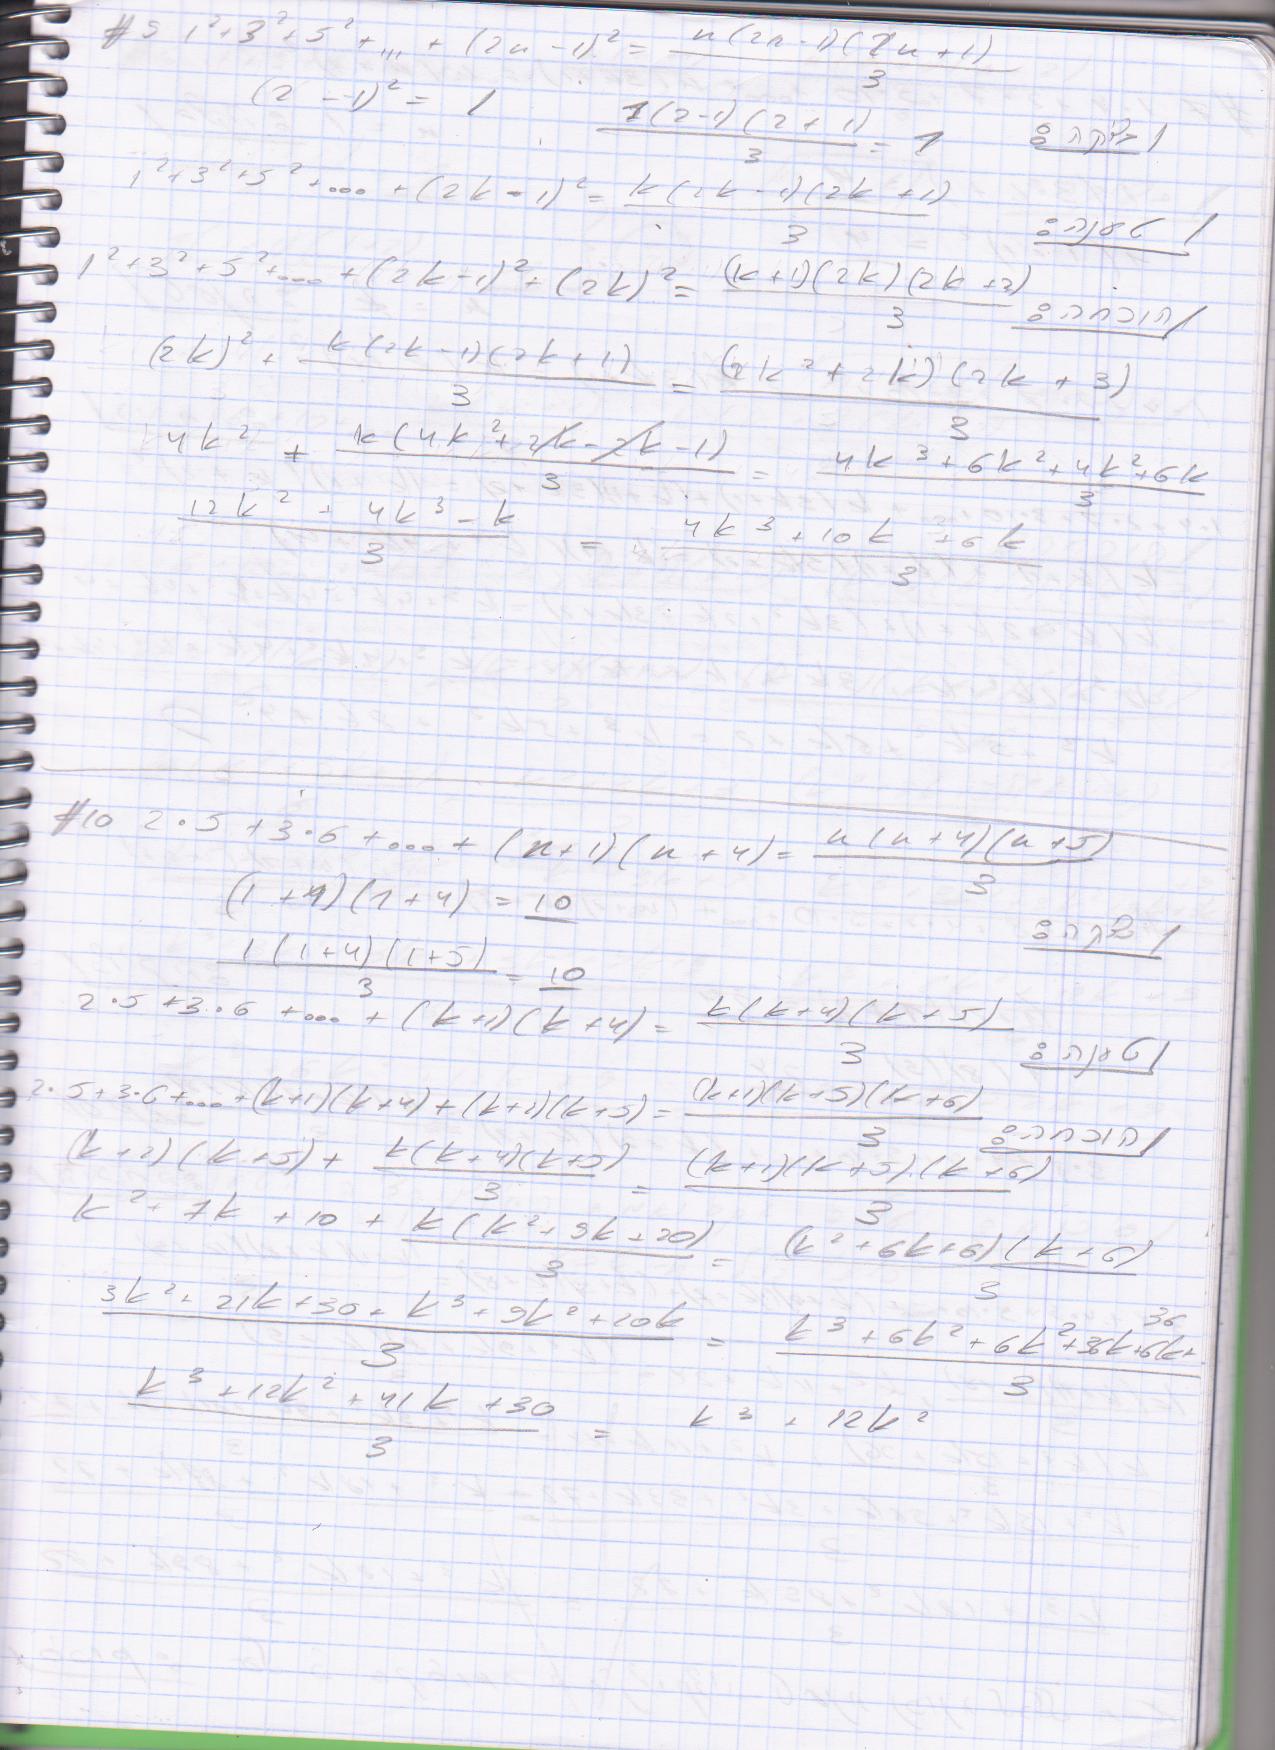 #5 1²+3²+5²+...+(2n-1)² = n(2n-1)(2n+1)/3
(2-1)² = 1   1(2-1)(2+1)/3 = 1   בדיקה:
1²+3²+5²+...+(2k-1)² = k(2k-1)(2k+1)/3   טענה:
1²+3²+5²+...+(2k-1)²+(2k)² = (k+1)(2k)(2k+3)/3   הוכחה:
(2k)² + k(2k-1)(2k+1)/3 = (2k²+2k)(2k+3)/3
4k² + k(4k²+2k-2k-1)/3 = 4k³+6k²+4k²+6k/3
12k²+4k³-k/3 = 4k³+10k²+6k/3
#10 2·5+3·6+...+(n+1)(n+4) = n(n+4)(n+5)/3
(1+1)(1+4) = 10   בדיקה:
1(1+4)(1+5)/3 = 10
2·5+3·6+...+(k+1)(k+4) = k(k+4)(k+5)/3   טענה:
2·5+3·6+...+(k+1)(k+4)+(k+2)(k+5) = (k+1)(k+5)(k+6)/3   הוכחה:
(k+2)(k+5) + k(k+4)(k+5)/3 = (k+1)(k+5)(k+6)/3
k²+7k+10 + k(k²+9k+20)/3 = (k²+6k+6)(k+6)/3
3k²+21k+30+k³+9k²+20k/3 = k³+6k²+6k²+36k+6k+36/3
k³+12k²+41k+30/3 = k³+12k²